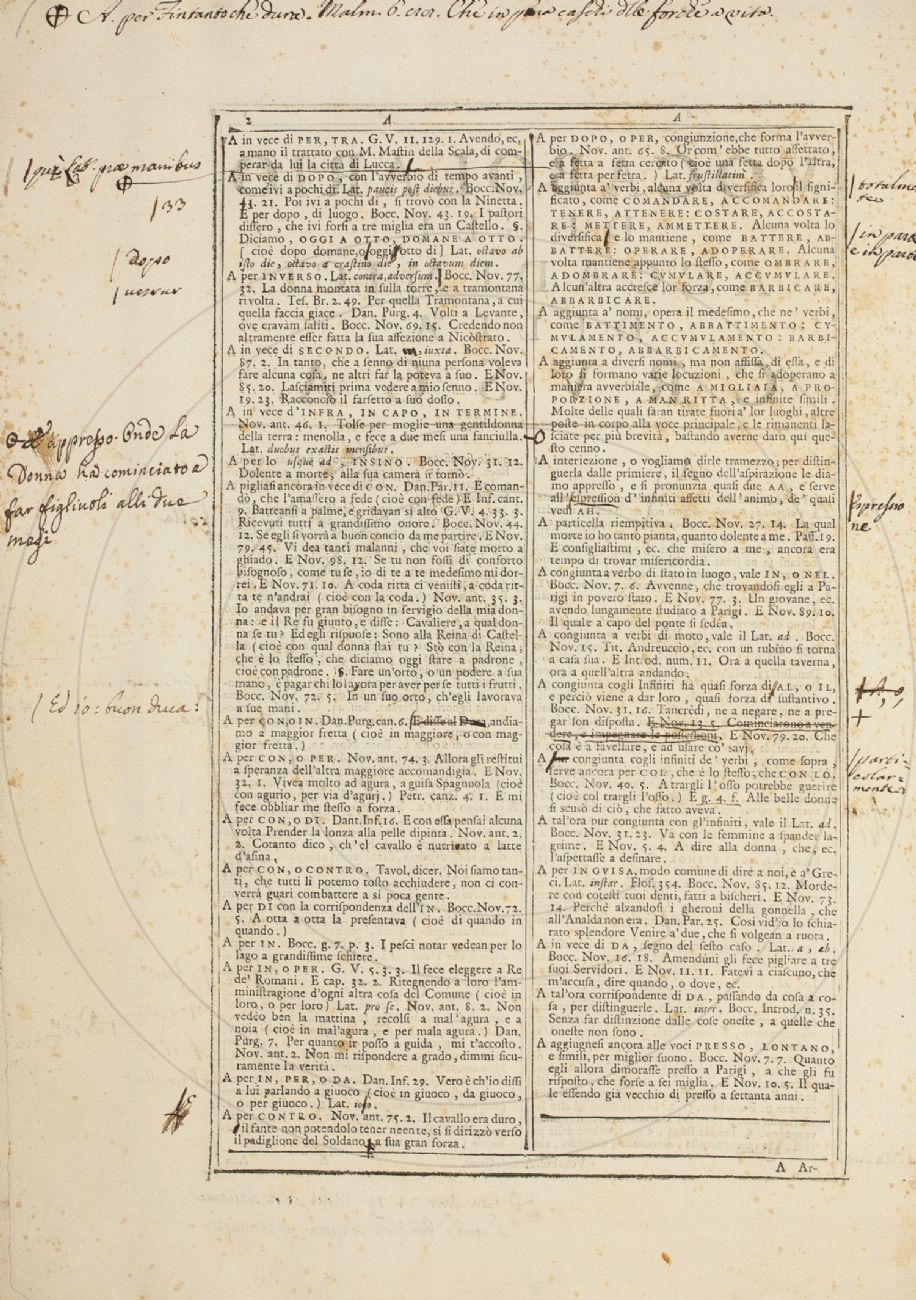 A. per Fintanto che dura. Malm. 6.
2 A
A
A in vece di PER, TRA. G. V. 11. 129. 1. Avendo, ec,
a mano il trattato con M. Mastin della Scala, di com-
perar da lui la città di Lucca.
A in vece di DOPO, con l'avverbio di tempo avanti,
come ivi a pochi dì. Lat. paucis post diebus. Bocc. Nov.
41. 21. Poi ivi a pochi dì, si trovò con la Ninetta.
E per dopo, di luogo. Bocc. Nov. 43. 19. I pastori
dissero, che ivi forsi a tre miglia era un Castello. §.
Diciamo, OGGI A OTTO, DOMANE A OTTO.
[ cioè dopo domane, o oggi otto dì ] Lat. octavo ab
isto die, octavo a crastino die, in octavum diem.
A per INVERSO. Lat. contra, adversum. Bocc. Nov. 77.
32. La donna montata in sulla torre, e a tramontana
rivolta. Tes. Br. 2. 49. Per quella Tramontana, a cui
quella faccia giace. Dan. Purg. 4. Volti a Levante,
ove eravam saliti. Bocc. Nov. 69. 15. Credendo non
altramente esser fatta la sua affezione a Nicostrato.
A in vece di SECONDO. Lat. iuxta. Bocc. Nov.
87. 2. In tanto, che a senno di niuna persona voleva
fare alcuna cosa, ne altri far la poteva a suo. E Nov.
85. 20. Lasciamiti prima vedere a mio senno. E Nov.
19. 23. Racconciò il farsetto a suo dosso.
A in vece d'INFRA, IN CAPO, IN TERMINE.
Nov. ant. 46. 1. Tolse per moglie una gentildonna
della terra: menolla, e fece a due mesi una fanciulla.
Lat. duobus exactis mensibus.
A per lo usque ad, INSINO. Bocc. Nov. 31. 12.
Dolente a morte, alla sua camera si tornò.
A pigliasi ancora in vece di CON. Dan. Par. 11. E coman-
dò, che l'amassero a fede (cioè con fede) E Inf. cant.
9. Batteansi a palme, e gridavan sì alto G. V. 4. 33. 3.
Ricevuti tutti a grandissimo onore. Bocc. Nov. 44.
12. Se egli si vorrà a buon concio da me partire. E Nov.
79. 45. Vi dea tanti malanni, che voi siate morto a
ghiado. E Nov. 98. 12. Se tu non fossi di conforto
bisognoso, come tu se, io di te a te medesimo mi dor-
rei. E Nov. 71. 10. A coda ritta ci venisti, a coda rit-
ta te n'andrai ( cioè con la coda. ) Nov. ant. 35. 3.
Io andava per gran bisogno in servigio della mia don-
na: e il Re fu giunto, e disse: Cavaliere, a qual don-
na se tu? Ed egli rispuose: Sono alla Reina di Castel-
la ( cioè con qual donna stai tu? Stò con la Reina;
che è lo stesso, che diciamo oggi stare a padrone,
cioè con padrone. §. Fare un'orto, o un podere a sua
mano, è pagar chi lavora per aver per se tutti i frutti.
Bocc. Nov. 72. 5. In un suo orto, ch'egli lavorava
a sue mani.
A per CON, O IN. Dan. Purg. can. 6. E disse al Duca, andia-
mo a maggior fretta ( cioè in maggiore, o con mag-
gior fretta. )
A per CON, O PER. Nov. ant. 74. 3. Allora gli restitui
a speranza dell'altra maggiore accomandigia. E Nov.
32. 1. Vivea molto ad agura, a guisa Spagnuola (cioè
con agurio, per via d'agurj.) Petr. canz. 4. 1. E mi
fece obbliar me stesso a forza.
A per CON, O DI. Dant. Inf. 16. E con essa pensai alcuna
volta Prender la lonza alla pelle dipinta. Nov. ant. 2.
2. Cotanto dico, ch'el cavallo è nutricato a latte
d'asina.
A per CON, O CONTRO. Tavol. dicer. Noi siamo tan-
ti, che tutti li potemo tosto acchiudere, non ci con-
verrà guari combattere a si poca gente.
A per DI con la corrispondenza dell'IN. Bocc. Nov. 72.
5. A otta a otta la presentava ( cioè di quando in
quando. )
A per IN. Bocc. g. 7. p. 3. I pesci notar vedean per lo
lago a grandissime schiere.
A per IN, O PER. G. V. 5. 3. 3. Il fece eleggere a Re
de' Romani. E cap. 32. 2. Ritegnendo a loro l'am-
ministragione d'ogni altra cosa del Comune ( cioè in
loro, o per loro) Lat. pro se, Nov. ant. 8. 2. Non
vedeo ben la mattina, recolsi a mal'agura, e a
noia ( cioè in mal'agura, e per mala agura. ) Dan.
Purg. 7. Per quanto ir posso a guida, mi t'accosto.
Nov. ant. 2. Non mi rispondere a grado, dimmi sicu-
ramente la verità.
A per IN, PER, O DA. Dan. Inf. 29. Vero è ch'io dissi
a lui parlando a giuoco ( cioè in giuoco, da giuoco,
o per giuoco. ) Lat. ioco.
A per CONTRO. Nov. ant. 75. 2. Il cavallo era duro,
il fante non potendolo tener neente, si si dirizzò verso
il padiglione del Soldano a sua gran forza.
A per DOPO, O PER, congiunzione, che forma l'avver-
bio. Nov. ant. 65. 8. Or com' ebbe tutto affettato,
e a fetta a fetta cercato ( cioè una fetta dopo l'altra,
e a fetta per fetta. ) Lat. frustillatim.
A aggiunta a' verbi, alcuna volta diversifica loro il signi-
ficato, come COMANDARE, ACCOMANDARE:
TENERE, ATTENERE: COSTARE, ACCOSTA-
RE: METTERE, AMMETTERE. Alcuna volta lo
diversifica, e lo mantiene, come BATTERE, AB-
BATTERE: OPERARE, ADOPERARE. Alcuna
volta mantiene appunto lo stesso, come OMBRARE,
ADOMBRARE: CVMVLARE, ACCVMVLARE.
Alcun'altra accresce lor forza, come BARBICARE,
ABBARBICARE.
A aggiunta a' nomi, opera il medesimo, che ne' verbi,
come BATTIMENTO, ABBATTIMENTO: CV-
MVLAMENTO, ACCVMVLAMENTO: BARBI-
CAMENTO, ABBARBICAMENTO.
A aggiunta a diversi nomi, ma non affissa, di essa, e di
loro si formano varie locuzioni, che si adoperano a
maniera avverbiale, come A MIGLIAIA, A PRO-
PORZIONE, A MAN RITTA, e infinite simili.
Molte delle quali saran tirate fuori a' lor luoghi, altre
poste in corpo alla voce principale, e le rimanenti la-
sciate per più brevità, bastando averne dato qui que-
sto cenno.
A interiezione, o vogliamo dirle tramezzo; per distin-
guerla dalle primiere, il segno dell'aspirazione le dia-
mo appresso, e si pronunzia quasi due AA, e serve
all'espression d'infiniti affetti dell'animo, de' quali
vedi AH.
A particella riempitiva. Bocc. Nov. 27. 14. La qual
morte io ho tanto pianta, quanto dolente a me. Pass. 19.
E consigliastimi, ec. che misero a me, ancora era
tempo di trovar misericordia.
A congiunta a verbo di stato in luogo, vale IN, O NEL.
Bocc. Nov. 7. 6. Avvenne, che trovandosi egli a Pa-
rigi in povero stato. E Nov. 77. 3. Un giovane, ec.
avendo lungamente studiato a Parigi. E Nov. 89. 10.
Il quale a capo del ponte si sedea.
A congiunta a verbi di moto, vale il Lat. ad. Bocc.
Nov. 15. Tit. Andreuccio, ec. con un rubino si torna
a casa sua. E Introd. num. 11. Ora a quella taverna,
ora a quell'altra andando.
A congiunta cogli Infiniti ha quasi forza di AL, O IL,
e perciò viene a dar loro, quasi forza di sustantivo.
Bocc. Nov. 31. 16. Tancredi, ne a negare, ne a pre-
gar son disposta. E Nov. 13. 5. Cominciarono a ven-
dere, e impegnare le possessioni. E Nov. 79. 20. Che
cosa è a favellare, e ad usare co' savj.
A congiunta cogli infiniti de' verbi, come sopra,
serve ancora per COL, che è lo stesso, che CON LO.
Bocc. Nov. 40. 5. A trargli l'osso potrebbe guerire
( cioè col trargli l'osso. ) E g. 4. f. Alle belle donne
si scusò di ciò, che fatto aveva.
A tal'ora pur congiunta con gl'infiniti, vale il Lat. ad.
Bocc. Nov. 31. 23. Va con le femmine a spander la-
grime. E Nov. 5. 4. A dire alla donna, che, ec.
l'aspettasse a desinare.
A per IN GVISA, modo comune di dire a noi, e a' Gre-
ci. Lat. instar. Flos. 354. Bocc. Nov. 85. 12. Morde-
re con cotesti tuoi denti, fatti a bischeri. E Nov. 73.
14. Perchè alzandosi i gheroni della gonnella, che
all'Analda non era. Dan. Par. 25. Così vid'io lo schia-
rato splendore Venire a' due, che si volgean a ruota.
A in vece di DA, segno del sesto caso. Lat. a, ab.
Bocc. Nov. 16. 18. Amenduni gli fece pigliare a tre
suoi Servidori. E Nov. 11. 11. Fatevi a ciascuno, che
m'accusa, dire quando, o dove, ec.
A tal'ora corrispondente di DA, passando da cosa a co-
sa, per distinguerle. Lat. inter. Bocc. Introd. n. 35.
Senza far distinzione dalle cose oneste, a quelle che
oneste non sono.
A aggiugnesi ancora alle voci PRESSO, LONTANO,
e simili, per miglior suono. Bocc. Nov. 7. 7. Quanto
egli allora dimorasse presso a Parigi, a che gli fu
risposto, che forse a sei miglia. E Nov. 10. 5. Il qua-
le essendo già vecchio di presso a settanta anni.
A Ar-
præ manibus
33
dopo
appresso. Onde La
Donna ha cominciato a
far figliuoli alli due
mesi
Ed io: buon duca:
totalmen
te
in parte
e in parte
Espressio
ne
A, o,
parti-
colar-
mente